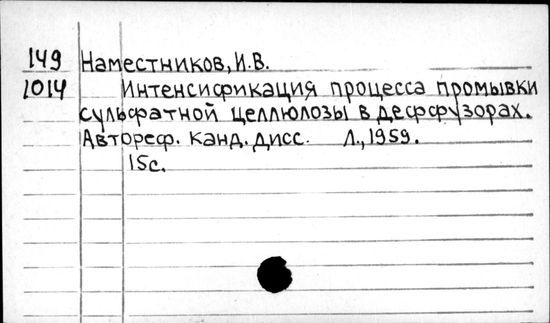 149 Наместников, И.В.
1014 Интенсификация процесса промывки
сульфатной целлюлозы в деффузорах.
Автореф. канд. дисс. Л., 1959.
15с.